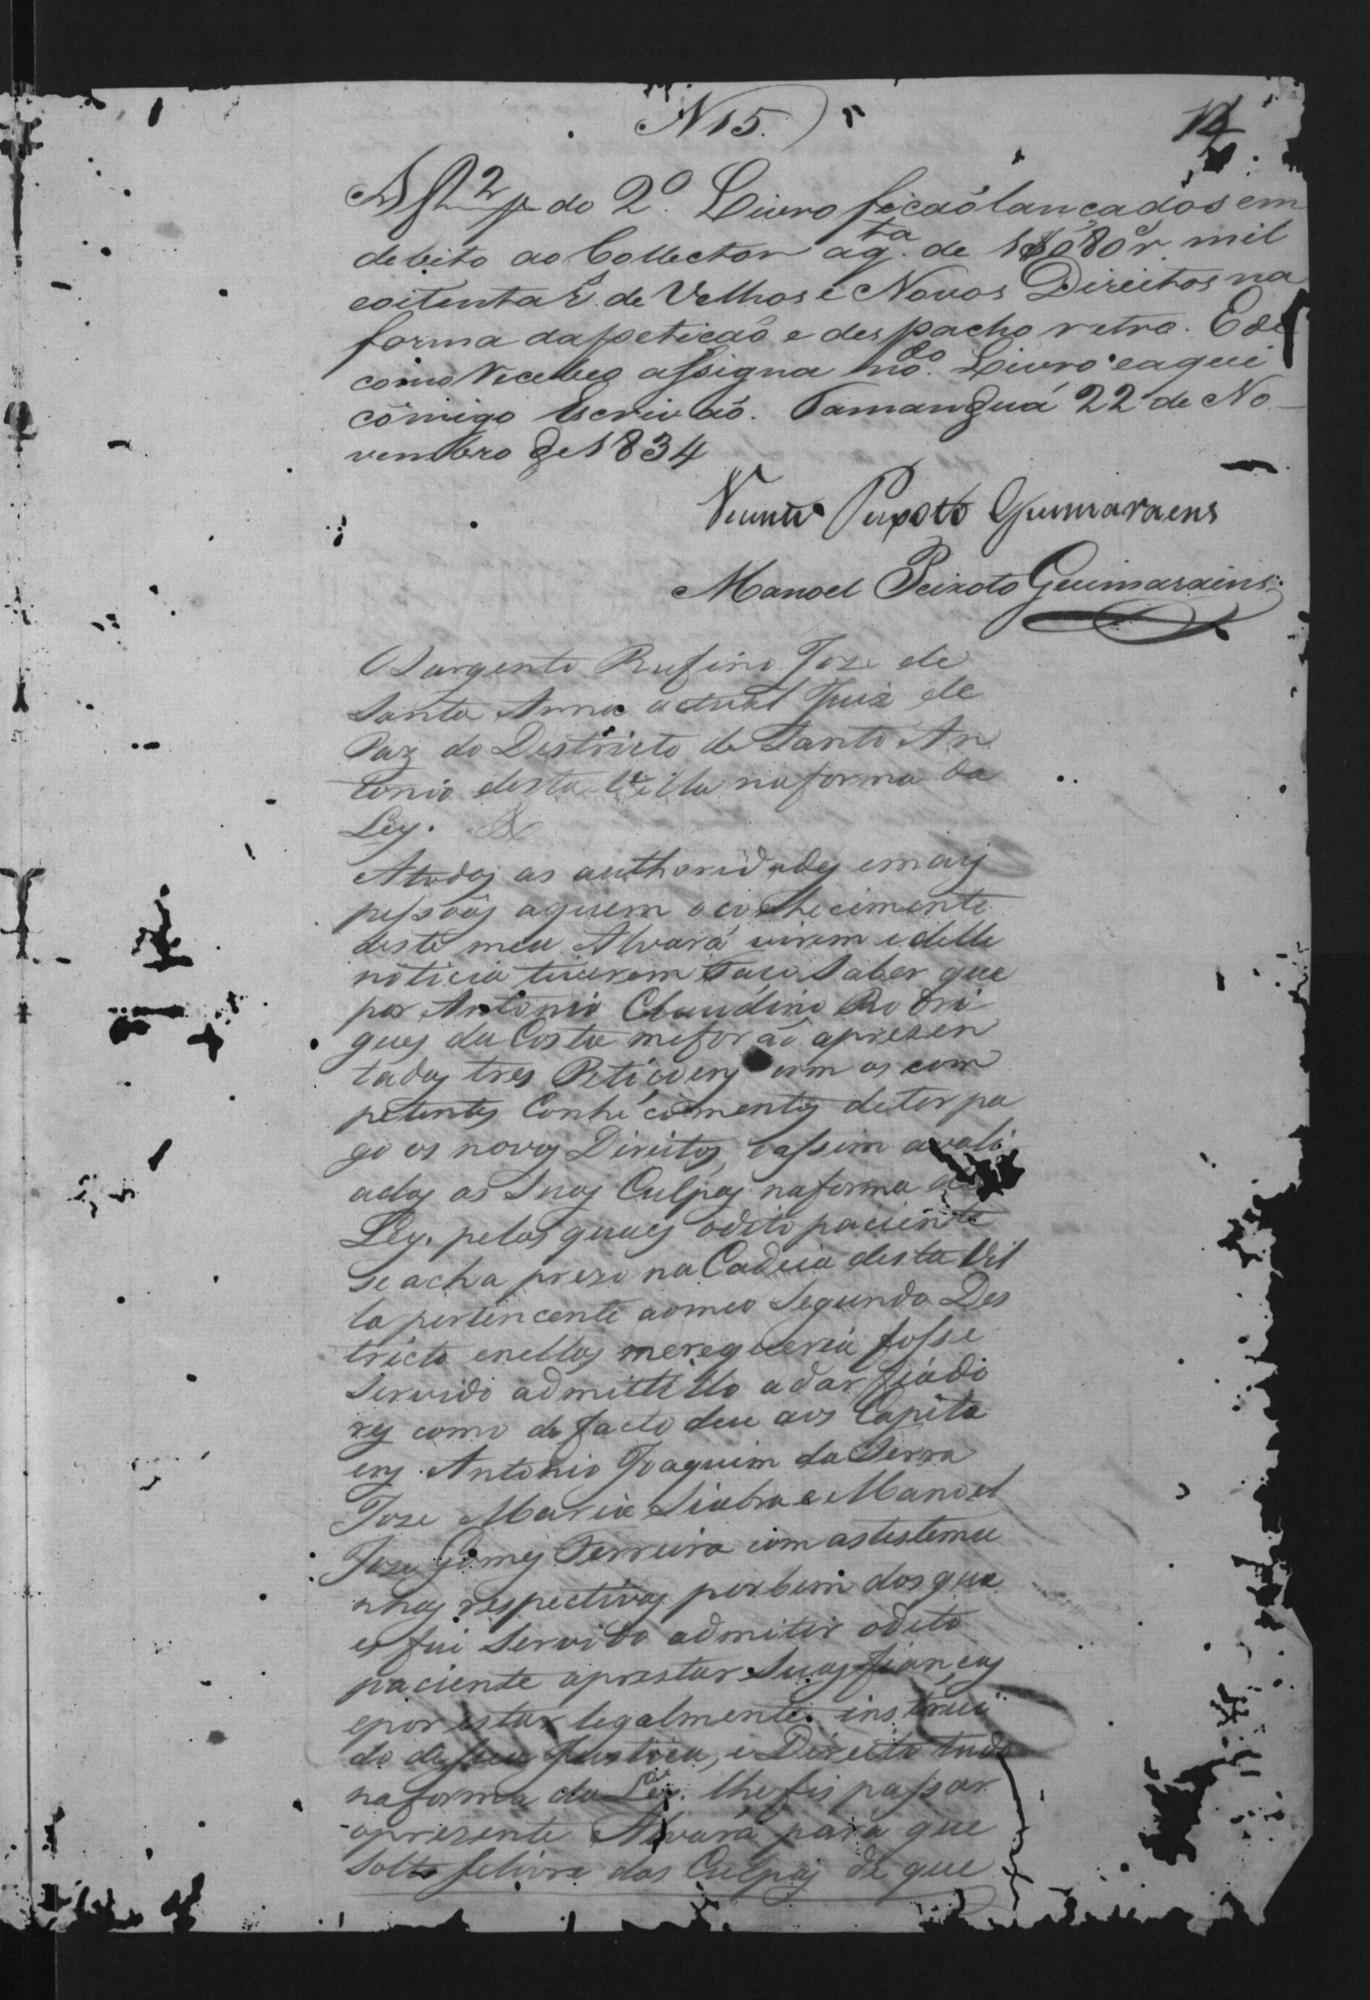 N 15.
12
A fl 2 do 2º. Livro ficão lançados em
debito ao Collector a q.ta de 1$080 r. mil
eoitenta r.s de Velhos e Novos Direitos na
forma dapetição e despacho retro. E de
como recebeo assigna no d.o Livro eaqui
cômigo Escrivão. Tamanguá 22 de No
vembro de 1834
Peixoto Guimaraens
Manoel Peixoto Guimaraens
O Sargento Rufino Joze de
Santa Anna actual Juiz de
Paz do Destricto de Santo An
tonio desta Villa naforma da
Ley. &
Atodos as authoridades emais
pessoas aquem o conhecimento
deste meu Alvará virem e delle
noticia tiverem Faço Saber que
por Antonio Claudino Rodri
gues da Costa meforão aprezen
tadas tres Petiçoens com os com
petentes Conhecimentos deter pa
go os novos Direitos, eassim avali
adas as Suas Culpas naforma da
Ley. pelas quaes odito paciente
se acha prezo na Cadeia desta Vil
la pertencente aomeo Segundo Des
tricto enellas merequeria fosse
Servido admittillo adar fiado
res como de facto deu aos Capita
ens Antonio Joaquim da Serra
Joze Maria Seabra e Manoel
Joze Gomes Ferreira com astestemu
nhas respectivas porbem dos qua
es fui Servido admitir odito
paciente aprestar Suas fianças
epor estar legalmente instrui
do de Sua Justiça, e Direito tudo
naforma da Ley. lhe fis passar
oprezente Alvará para que
Solto selivre das Culpas de que